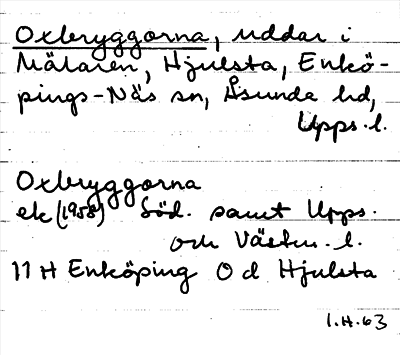 Oxbryggorna, uddar i
Mälaren, Hjulsta, Enkö-
pings-Näs sn, Åsunda hd,
Upps. l.
Oxbryggorna
ek (1958) Söd. samt Upps.
och Västm. l.
11 H Enköping O d Hjulsta
1.H.63